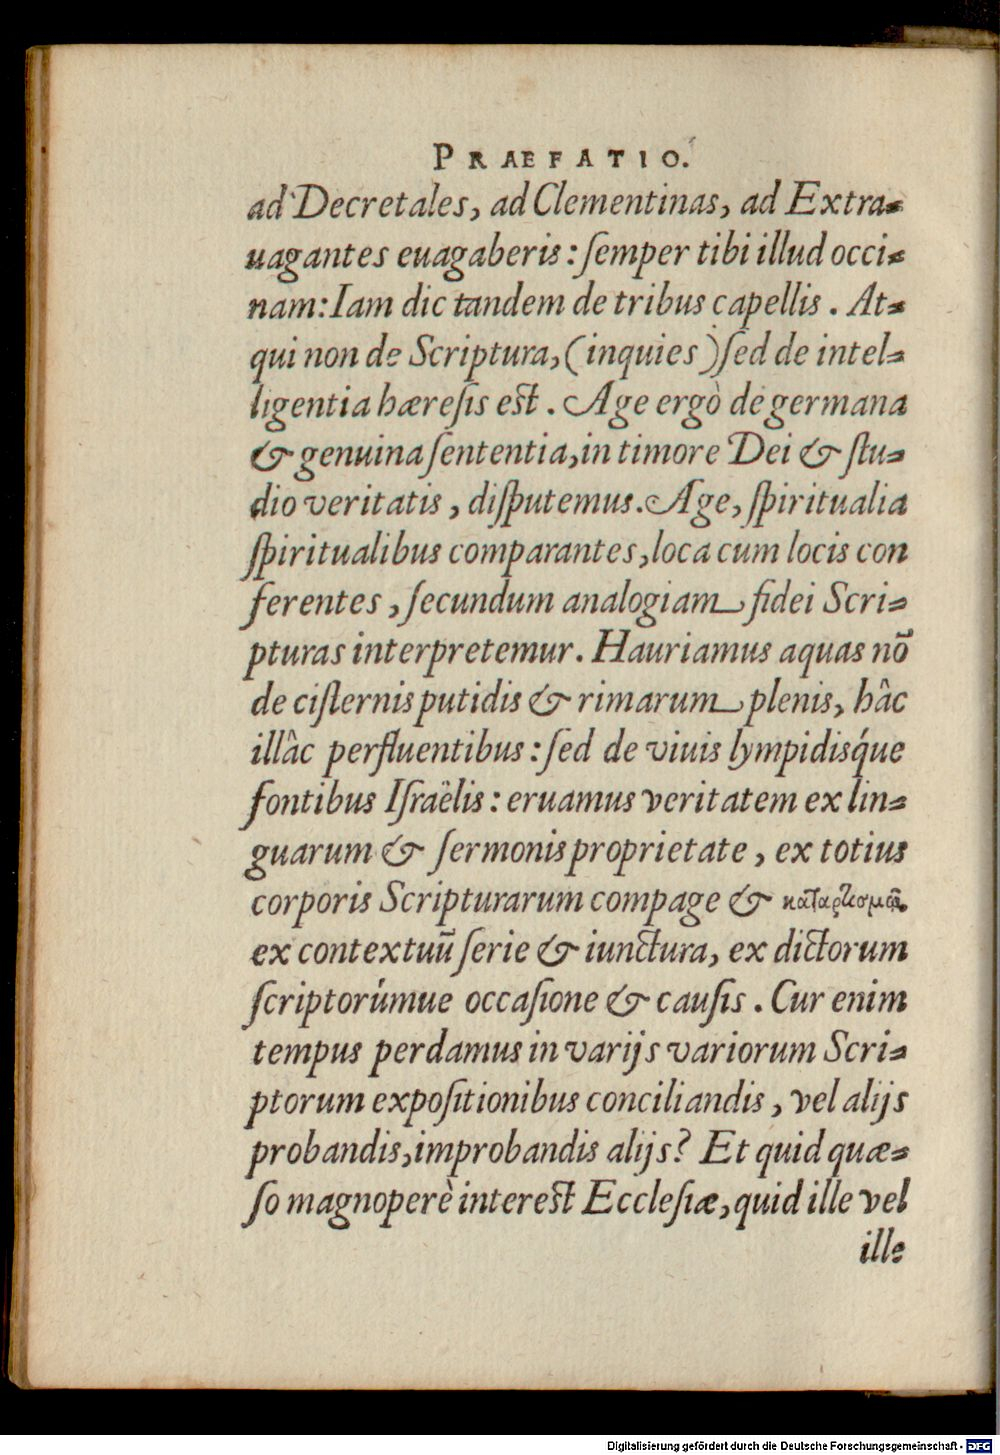 PRAEFATIO.
ad Decretales, ad Clementinas, ad Extra-
uagantes euagaberis: ſemper tibi illud occi-
nam: Iam dic tandem de tribus capellis. At-
qui non de Scriptura, (inquies) ſed de intel-
ligentia hæreſis est. Age ergò de germana
& genuina ſententia, in timore Dei & ſtu-
dio veritatis, diſputemus. Age, ſpiritualia
ſpiritualibus comparantes, loca cum locis con
ferentes, ſecundum analogiam fidei Scri-
pturas interpretemur. Hauriamus aquas nō
de ciſternis putidis & rimarum plenis, hâc
illâc perfluentibus: ſed de viuis lympidisq́ue
fontibus Iſraëlis: eruamus veritatem ex lin-
guarum & ſermonis proprietate, ex totius
corporis Scripturarum compage & καταρτισμῶ.
ex contextuū ſerie & iunctura, ex dictorum
ſcriptorúmue occaſione & cauſis. Cur enim
tempus perdamus in varijs variorum Scri-
ptorum expoſitionibus conciliandis, vel alijs
probandis, improbandis alijs? Et quid quæ-
ſo magnoperè interest Eccleſiæ, quid ille vel
ille
Digitalisierung gefördert durch die Deutsche Forschungsgemeinschaft - DFG